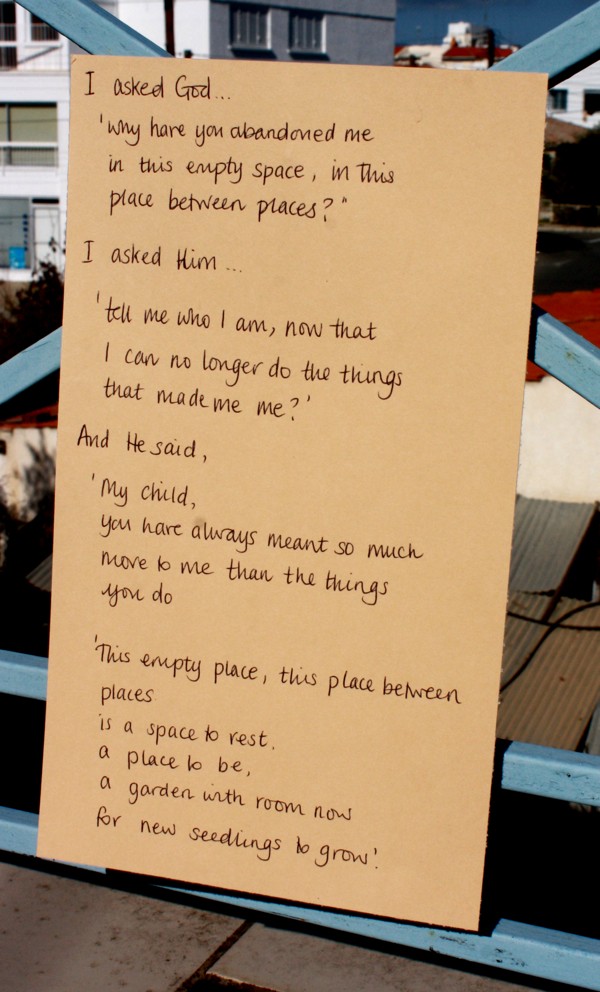 I asked God...
'why have you abandoned me
in this empty space, in this
place between places?"
I asked Him ...
'tell me who I am, now that
I can no longer do the things
that made me me?'
And He said,
'My child,
you have always meant so much
more to me than the things
you do
'This empty place, this place between
places
is a space to rest,
a place to be,
a garden with room now
for new seedlings to grow'.